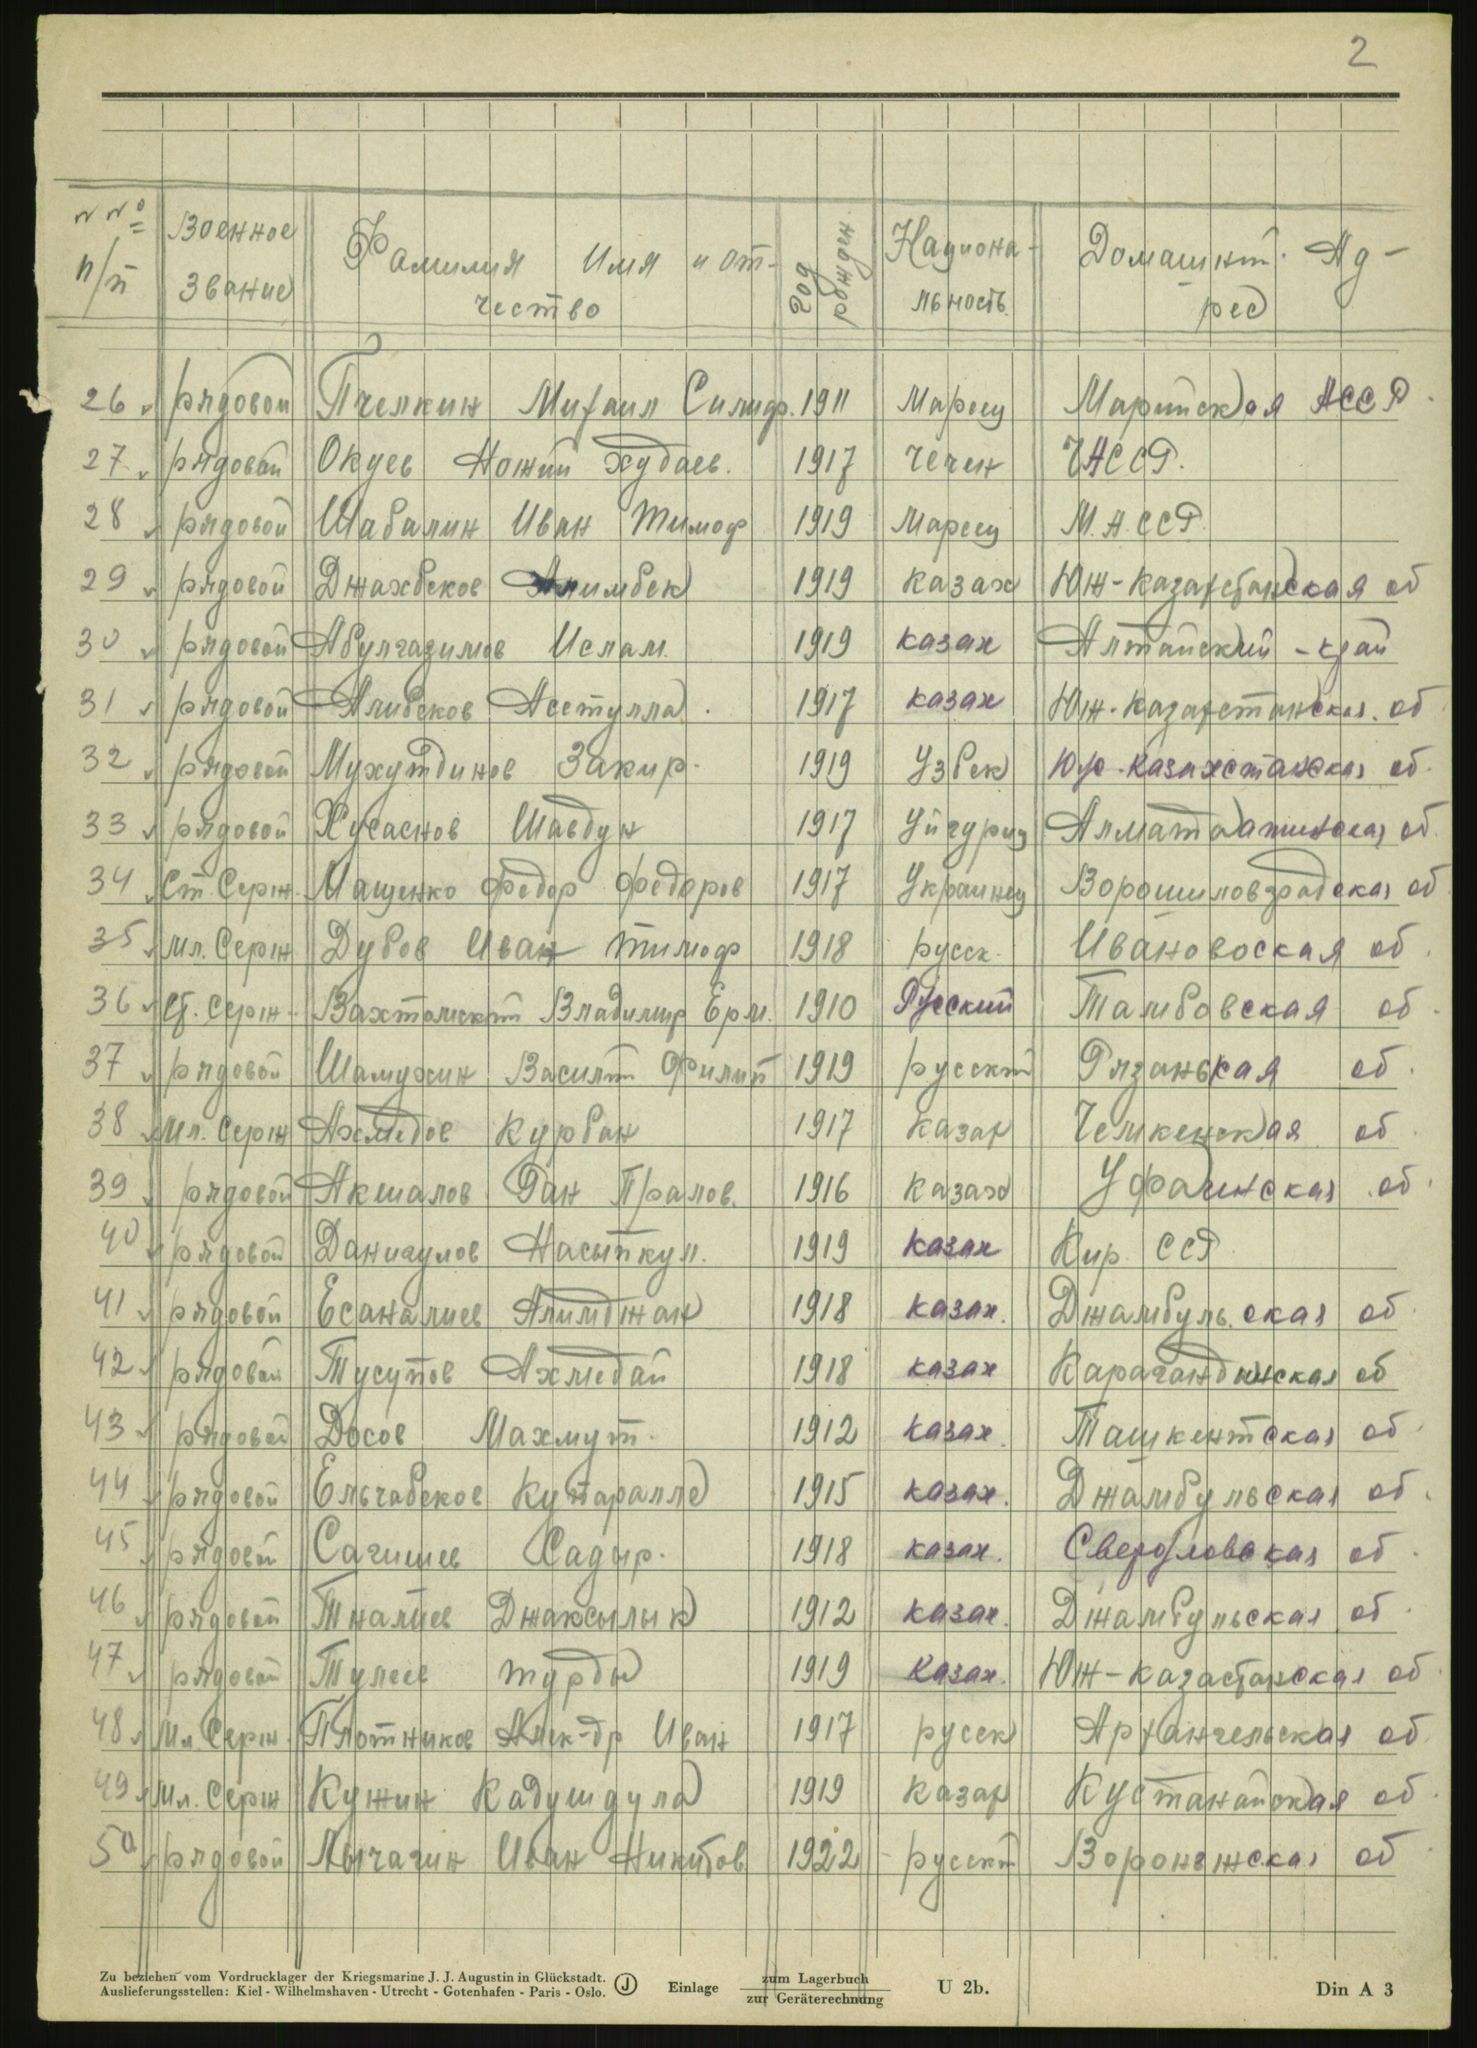 2
№№ п/п Военное Звание Фамилия Имя и отчество год рожден. Национальность Домашний Адрес
26 рядовой Пчелкин Михаил Силиф. 1911 Мареец Марийская АССР.
27 рядовой Окуев Ножий Худаев. 1917 Чечен ЧАССР.
28 рядовой Шабалин Иван Тимоф 1919 Мареец М.А.ССР
29 рядовой Джахбеков Алимбек 1919 казах Юж-Казахстанская об
30 рядовой Абулгазимов Ислам. 1919 казах Алтайский-край
31 рядовой Алибеков Асетулла. 1917 казах Юж-Казахстанская. об
32 рядовой Мухутдинов Закир. 1919 Узбек Юж-Казахстанская об.
33 рядовой Хусаенов Шавдун 1917 Уйгурец Алматоатинская об.
34 Ст. Серж. Мащенко Федор Федоров 1917 Украинец Ворошиловградская об
35 Мл. Серж Дубов Иван Тимоф 1918 русск. Ивановоская об.
36 Ст. Серж. Вахтомский Владимир Ерм. 1910 Русский Тамбовская об.
37 рядовой Шамухин Василий Филип 1919 русский Рязанская об.
38 Мл. Серж Ахмедов Курбан 1917 казах Чемкенская об.
39 рядовой Акшалов Ран Пралов. 1916 казах Уфаинская об.
40 рядовой Данигулов Насыпкул. 1919 казах Кир. ССР
41 рядовой Есаналиев Алимджан 1918 казах. Джамбульская об.
42 рядовой Тусупов Ахмедай 1918 казах Карагандинская об
43 рядовой Досов Махмут. 1912 казах. Ташкентская об.
44 рядовой Ельчабеков Кутаралле 1915 казах. Джамбульская об.
45 рядовой Сагишев Садыр. 1918 казах. Свердловская об.
46 рядовой Тналиев Джаксылык 1912 казах. Джамбульская об.
47 рядовой Тулеев Турды 1919 казах. Юж-Казастанская об.
48 Мл. Серж. Плотников Алек-др Иван 1917 русск Архангельская об.
49 Мл. Серж Кужин Кадушдула 1919 казах Кустанайская об.
50 рядовой Лычагин Иван Никитов 1922 русский Воронежская об.
Zu beziehen vom Vordrucklager der Kriegsmarine J. J. Augustin in Glückstadt.
Auslieferungsstellen: Kiel - Wilhelmshaven - Utrecht - Gotenhafen - Paris - Oslo.
J Einlage zum Lagerbuch zur Geräterechnung U 2b. Din A 3